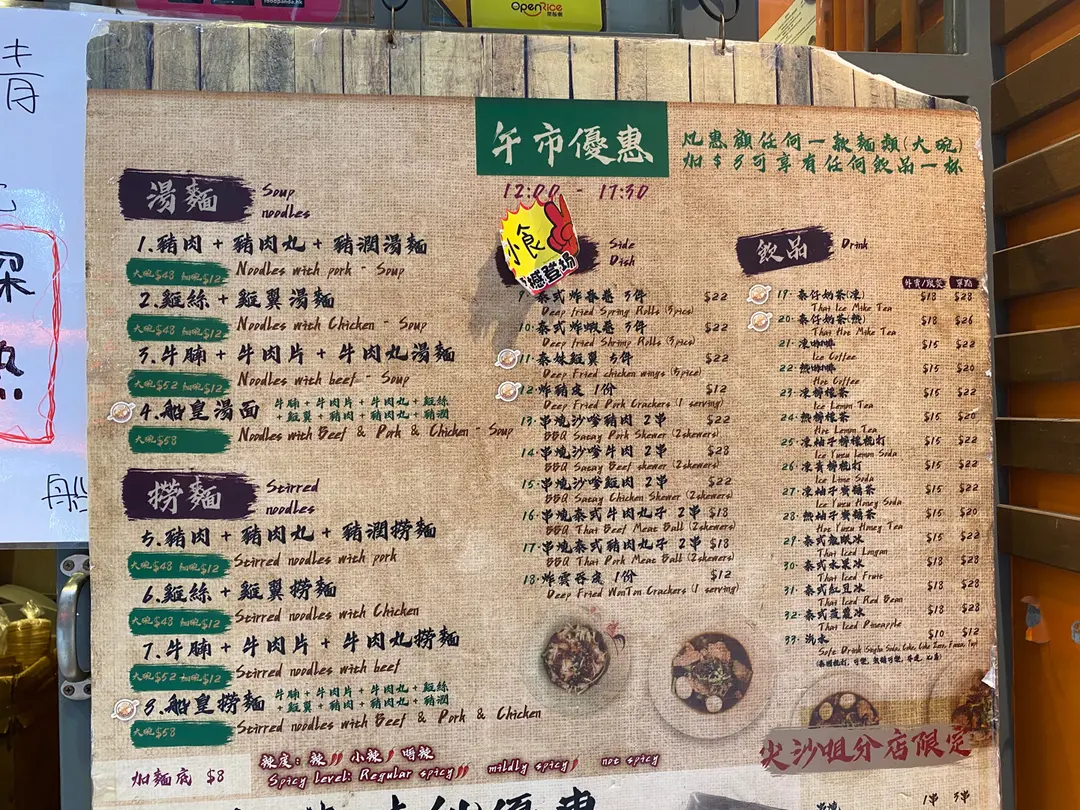 OpenRice
午市優惠
凡惠顧任何一款麵類(大碗)
加$8可享有任何飲品一杯
12:00 - 17:30
湯麵
Soup noodles
1.豬肉 + 豬肉丸 + 豬潤湯麵
大碗$48 加配$12
Noodles with pork - Soup
2.雞絲 + 雞翼湯麵
大碗$48 加配$12
Noodles with Chicken - Soup
3.牛腩 + 牛肉片 + 牛肉丸湯麵
大碗$52 加配$12
Noodles with beef - Soup
4.船皇湯面
牛腩 + 牛肉片 + 牛肉丸 + 雞絲
+ 雞翼 + 豬肉 + 豬肉丸 + 豬潤
大碗$58
Noodles with Beef & Pork & Chicken - Soup
撈麵
Stirred noodles
5.豬肉 + 豬肉丸 + 豬潤撈麵
大碗$48 加配$12
Stirred noodles with pork
6.雞絲 + 雞翼撈麵
大碗$48 加配$12
Stirred noodles with Chicken
7.牛腩 + 牛肉片 + 牛肉丸撈麵
大碗$52 加配$12
Stirred noodles with beef
8.船皇撈麵
牛腩 + 牛肉片 + 牛肉丸 + 雞絲
+ 雞翼 + 豬肉 + 豬肉丸 + 豬潤
大碗$58
Stirred noodles with Beef & Pork & Chicken
加麵底 $8
辣度: 辣 小辣 唔辣
Spicy Level: Regular spicy mildly spicy not spicy
小食
登場
Side Dish
9·泰式炸春卷 3件 $22
Deep fried Spring Rolls (3pics)
10·泰式炸蝦卷 3件 $22
Deep fried Shrimp Rolls (3pics)
11·泰妹雞翼 5件 $22
Deep Fried chicken wings (5pics)
12·炸豬皮 1份 $12
Deep Fried Pork Crackers (1 serving)
13·串燒沙爹豬肉 2串 $22
BBQ Saeay Pork Skewer (2skewers)
14·串燒沙爹牛肉 2串 $28
BBQ Saeay Beef skewer (2skewers)
15·串燒沙爹雞肉 2串 $22
BBQ Saeay Chicken Skewer (2skewers)
16·串燒泰式牛肉丸子 2串 $18
BBQ Thai Beef Meat Ball (2skewers)
17·串燒泰式豬肉丸子 2串 $18
BBQ Thai Pork Meat Ball (2skewers)
18·炸雲吞皮 1份 $12
Deep Fried WonTon Crackers (1 serving)
飲品
Drink
外賣/跟餐 單點
19·泰仔奶茶(凍) $18 $28
Thai Ice Mike Tea
20·泰仔奶茶(熱) $18 $26
Thai Hoe Mike Tea
21·凍咖啡 $15 $22
Ice Coffee
22·熱咖啡 $15 $20
Hoe Coffee
23·凍檸檬茶 $15 $22
Ice Lemon Tea
24·熱檸檬茶 $15 $20
Hoe Lemon Tea
25·凍柚子檸檬梳打 $15 $22
Ice Yuzu Lemon Soda
26·凍青檸梳打 $15 $22
Ice Lime Soda
27·凍柚子蜜糖茶 $15 $22
Ice Yuzu Honey Soda
28·熱柚子蜜糖茶 $15 $20
Hoe Yuzu Honey Tea
29·泰式龍眼冰 $15 $22
Thai Iced Longan
30·泰式水果冰 $18 $28
Thai Iced Fruit
31·泰式紅豆冰 $18 $28
Thai Iced Red Bean
32·泰式菠蘿冰 $18 $28
Thai Iced Pineapple
33·汽水 $10 $12
尖沙咀分店限定